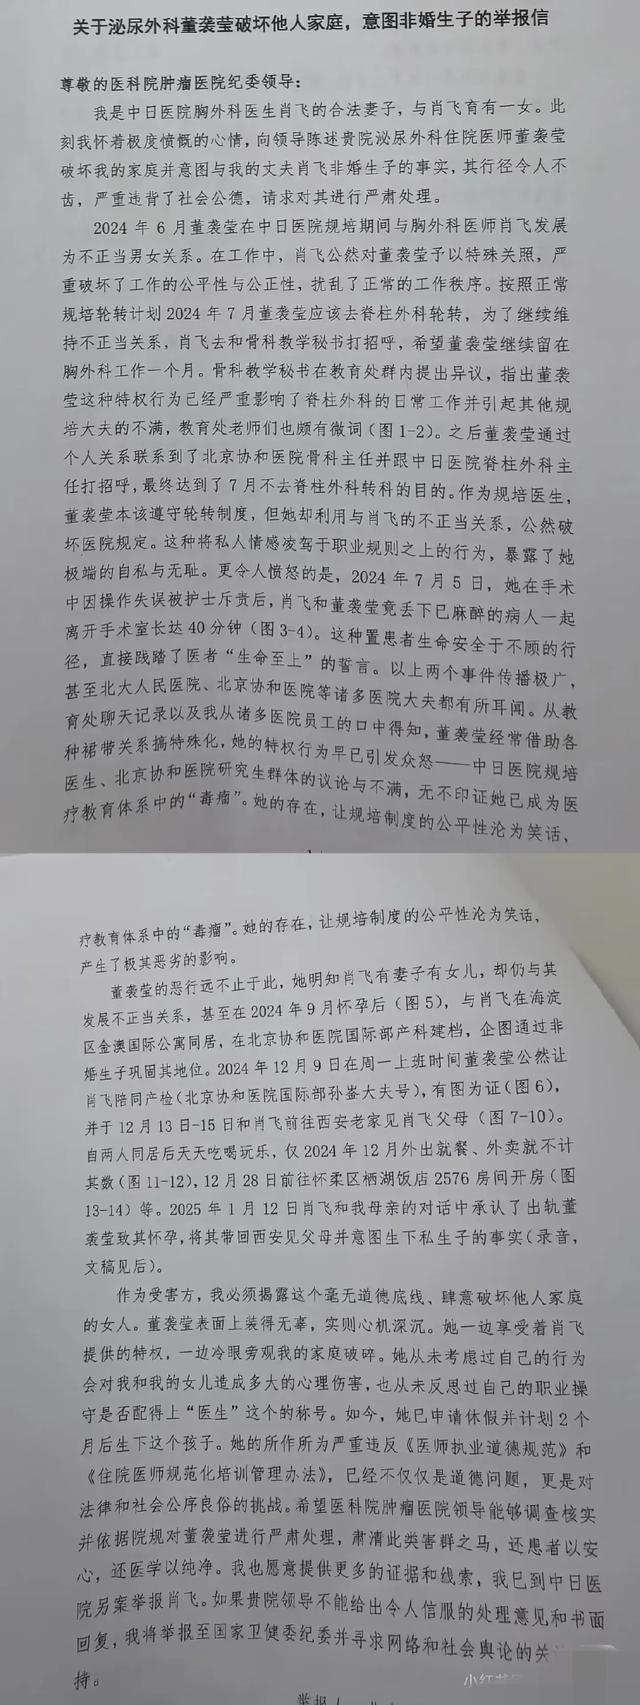 关于泌尿外科董袭莹破坏他人家庭，意图非婚生子的举报信
尊敬的医科院肿瘤医院纪委领导：
我是中日医院胸外科医生肖飞的合法妻子，与肖飞育有一女。此
刻我怀着极度愤慨的心情，向领导陈述贵院泌尿外科住院医师董袭莹
破坏我的家庭并意图与我的丈夫肖飞非婚生子的事实，其行径令人不
齿，严重违背了社会公德，请求对其进行严肃处理。
2024 年 6 月董袭莹在中日医院规培期间与胸外科医师肖飞发展
为不正当男女关系。在工作中，肖飞公然对董袭莹予以特殊关照，严
重破坏了工作的公平性与公正性，扰乱了正常的工作秩序。按照正常
规培轮转计划 2024 年 7 月董袭莹应该去脊柱外科轮转，为了继续维
持不正当关系，肖飞去和骨科教学秘书打招呼，希望董袭莹继续留在
胸外科工作一个月。骨科教学秘书在教育处群内提出异议，指出董袭
莹这种特权行为已经严重影响了脊柱外科的日常工作并引起其他规
培大夫的不满，教育处老师们也颇有微词（图 1-2）。之后董袭莹通过
个人关系联系到了北京协和医院骨科主任并跟中日医院脊柱外科主
任打招呼，最终达到了 7 月不去脊柱外科转科的目的。作为规培医生，
董袭莹本该遵守轮转制度，但她却利用与肖飞的不正当关系，公然破
坏医院规定。这种将私人情感凌驾于职业规则之上的行为，暴露了她
极端的自私与无耻。更令人愤怒的是，2024 年 7 月 5 日，她在手术
中因操作失误被护士斥责后，肖飞和董袭莹竟丢下已麻醉的病人一起
离开手术室长达 40 分钟（图 3-4）。这种置患者生命安全于不顾的行
径，直接践踏了医者“生命至上”的誓言。以上两个事件传播极广，
甚至北大人民医院、北京协和医院等诸多医院大夫都有所耳闻。从教
育处聊天记录以及我从诸多医院员工的口中得知，董袭莹经常借助各
种裙带关系搞特殊化，她的特权行为早已引发众怒——中日医院规培
医生、北京协和医院研究生群体的议论与不满，无不印证她已成为医
疗教育体系中的“毒瘤”。她的存在，让规培制度的公平性沦为笑话，
疗教育体系中的“毒瘤”。她的存在，让规培制度的公平性沦为笑话，
产生了极其恶劣的影响。
董袭莹的恶行远不止于此，她明知肖飞有妻子有女儿，却仍与其
发展不正当关系，甚至在 2024 年 9 月怀孕后（图 5），与肖飞在海淀
区金澳国际公寓同居，在北京协和医院国际部产科建档，企图通过非
婚生子巩固其地位。2024 年 12 月 9 日在周一上班时间董袭莹公然让
肖飞陪同产检（北京协和医院国际部孙崟大夫号），有图为证（图 6），
并于 12 月 13 日-15 日和肖飞前往西安老家见肖飞父母（图 7-10）。
自两人同居后天天吃喝玩乐，仅 2024 年 12 月外出就餐、外卖就不计
其数（图 11-12），12 月 28 日前往怀柔区栖湖饭店 2576 房间开房（图
13-14）等。2025 年 1 月 12 日肖飞和我母亲的对话中承认了出轨董
袭莹致其怀孕，将其带回西安见父母并意图生下私生子的事实（录音，
文稿见后）。
作为受害方，我必须揭露这个毫无道德底线、肆意破坏他人家庭
的女人。董袭莹表面上装得无辜，实则心机深沉。她一边享受着肖飞
提供的特权，一边冷眼旁观我的家庭破碎。她从未考虑过自己的行为
会对我和我的女儿造成多大的心理伤害，也从未反思过自己的职业操
守是否配得上“医生”这个的称号。如今，她已申请休假并计划 2 个
月后生下这个孩子。她的所作所为严重违反《医师执业道德规范》和
《住院医师规范化培训管理办法》，已经不仅仅是道德问题，更是对
法律和社会公序良俗的挑战。希望医科院肿瘤医院领导能够调查核实
并依据院规对董袭莹进行严肃处理，肃清此类害群之马，还患者以安
心，还医学以纯净。我也愿意提供更多的证据和线索，我已到中日医
院另案举报肖飞。如果贵院领导不能给出令人信服的处理意见和书面
回复，我将举报至国家卫健委纪委并寻求网络和社会舆论的关
持。
小红书
举报人